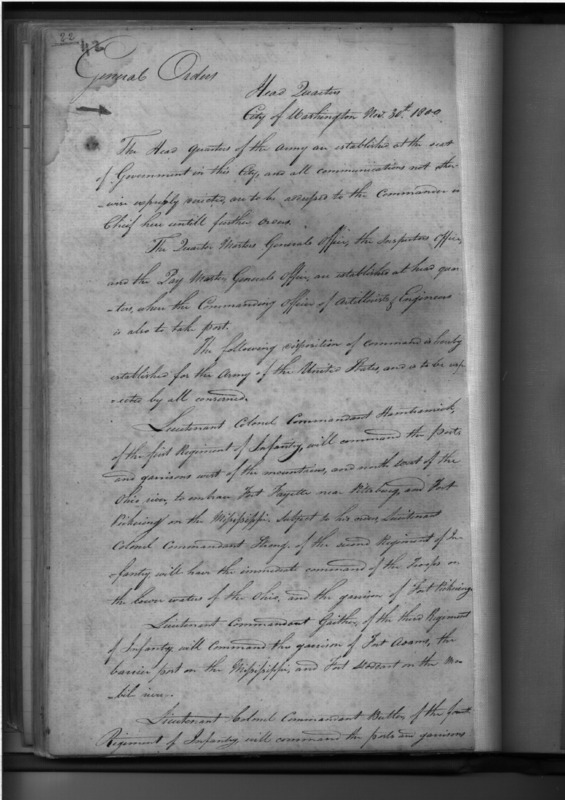 22
42
General Orders
Head Quarters
City of Washington Nov. 30th. 1800.
The Head Quarters of the Army are established at the seat
of Government in this City, and all communications not other
-wise expressly directed, are to be addressed to the Commander in
Chief here untill further orders.
The Quarter Masters Generals Office, the Inspectors Office,
and the Pay Master Generals Office, are established at head quar
-ters, where the Commanding Officer of Artillerists & Engineers
is also to take post.
The following disposition of command is hereby
established for the Army of the United States, and is to be resp
-ected by all concerned.
Lieutenant Colonel Commandant Hamtramck,
of the first Regiment of Infantry, will command the posts
and garrisons west of the mountains, and north west of the
Ohio river, to embrace Fort Fayette near Pittsburg, and Fort
Pickering on the Mississippi. Subject to his orders, Lieutenant
Colonel Commandant Strong of the second Regiment of In
-fantry will have the immediate command of the Troops on
the lower waters of the Ohio, and the garrison of Fort Pickering.
Lieutenant Commandant Gaither, of the third Regiment
of Infantry will command the garrison of Fort Adams, the
barrier post on the Mississippi, and Fort Stoddart on the Mo
-bile river.
Lieutenant Colonel Commandant Butler, of the fourth
Regiment of Infantry will command the posts and garrisons